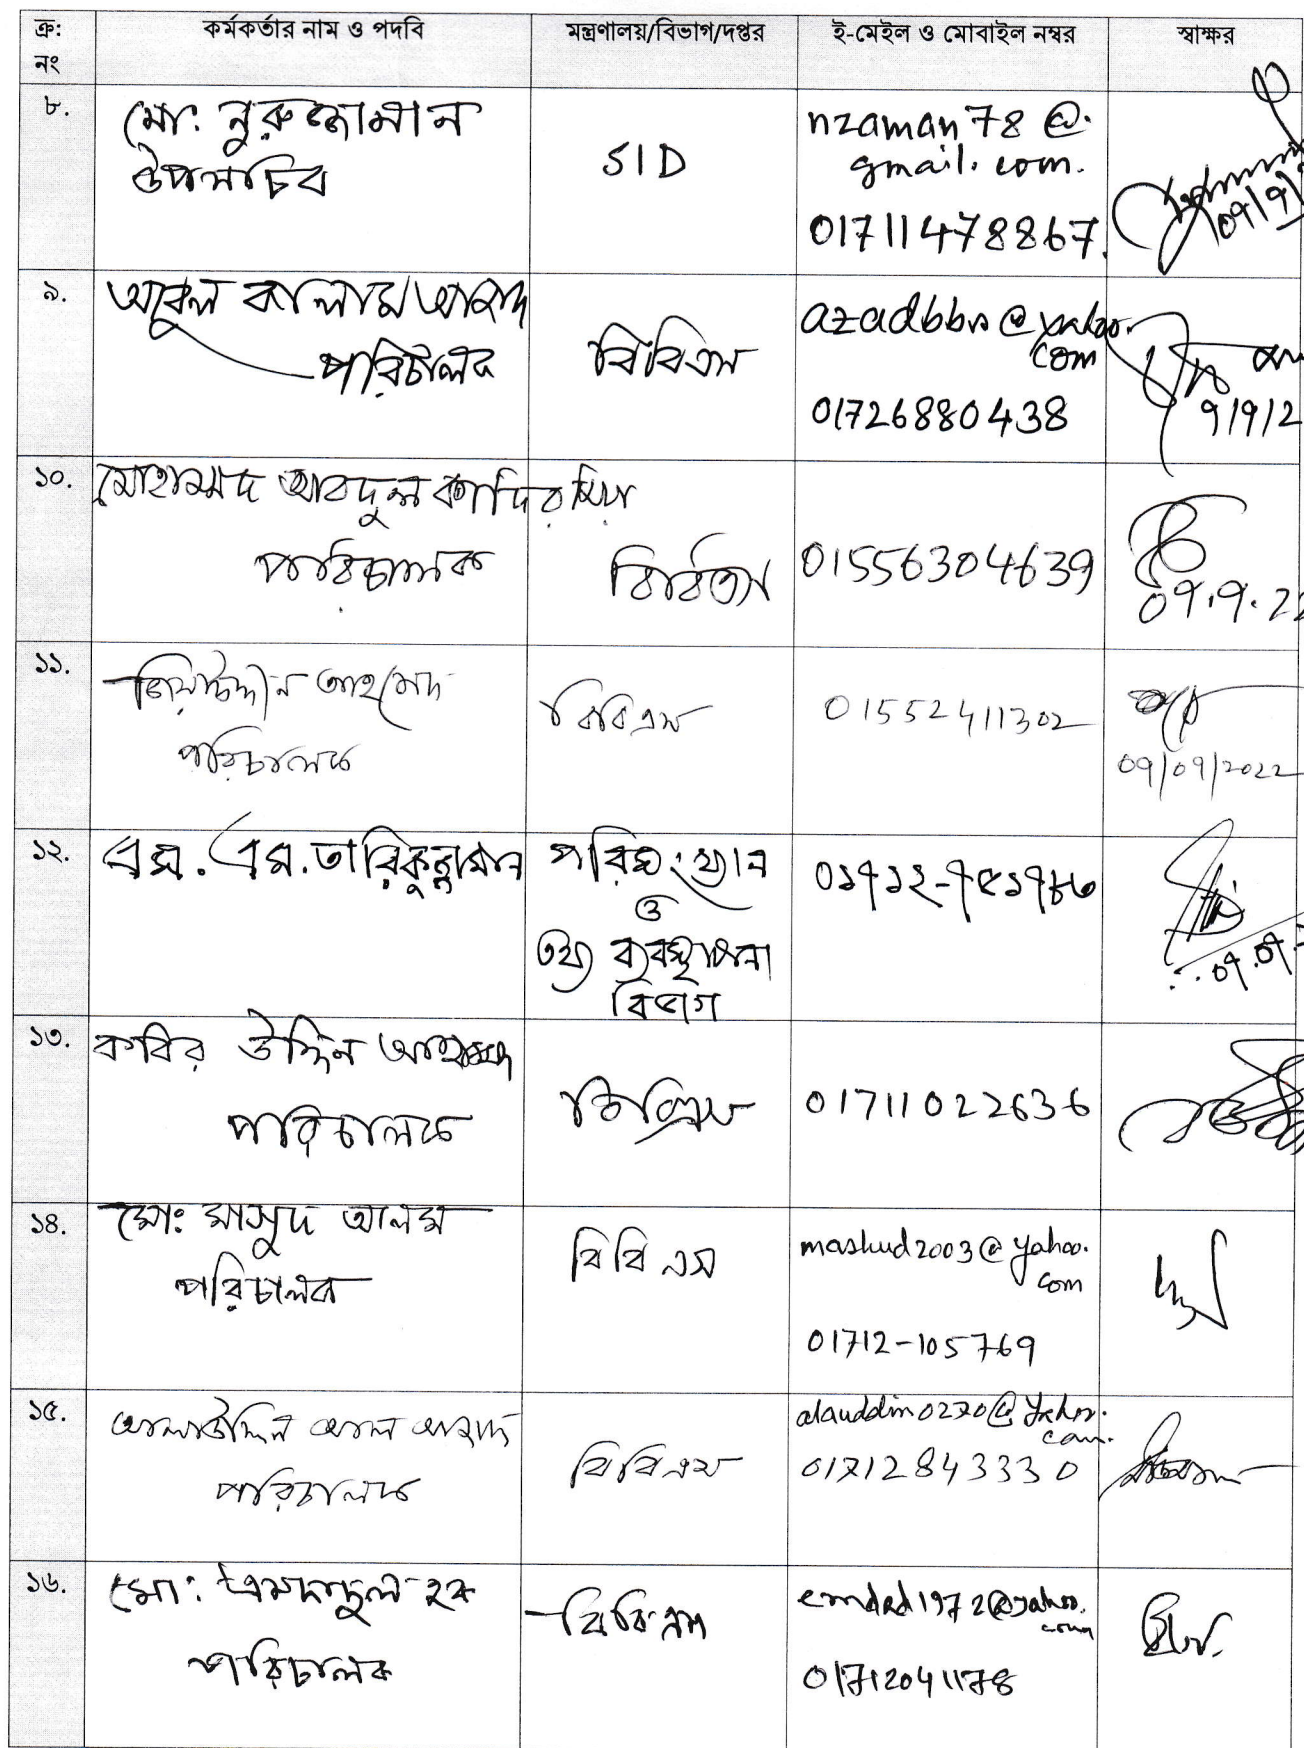 ক্র: নং কর্মকর্তার নাম ও পদবি মন্ত্রণালয়/বিভাগ/দপ্তর ই-মেইল ও মোবাইল নম্বর স্বাক্ষর
৮.
মো: নুরুজ্জামান
উপসচিব
SID
nzaman78@
gmail.com.
01711478867.
09/9/
৯.
আবুল কালাম আজাদ
পরিচালক
বিবিএস
azadbbs@yahoo.
com
01726880438
9/9/2
১০.
মোহাম্মদ আবদুল কাদির মিয়া
পরিচালক
বিবিএস
01556304639
09.9.22
১১.
জিয়াউদ্দীন আহমেদ
পরিচালক
বিবিএস
01552411302
09/09/2022
১২.
এস. এম. তারিকুজ্জামান
পরিসংখ্যান
ও
তথ্য ব্যবস্থাপনা
বিভাগ
০১৭১২-৭৫১৭৮৬
09.09.
১৩.
কবির উদ্দিন আহাম্মদ
পরিচালক
বিবিএস
01711022636
১৪.
মো: মাসুদ আলম
পরিচালক
বিবিএস
mashud2003@yahoo.
com
01712-105769
১৫.
আলাউদ্দিন আল আজাদ
পরিচালক
বিবিএস
alauddin0270@yahoo.
com.
01712843330
১৬.
মো: এমদাদুল হক
পরিচালক
বিবিএস
emded1972@yahoo.
com
01712041178